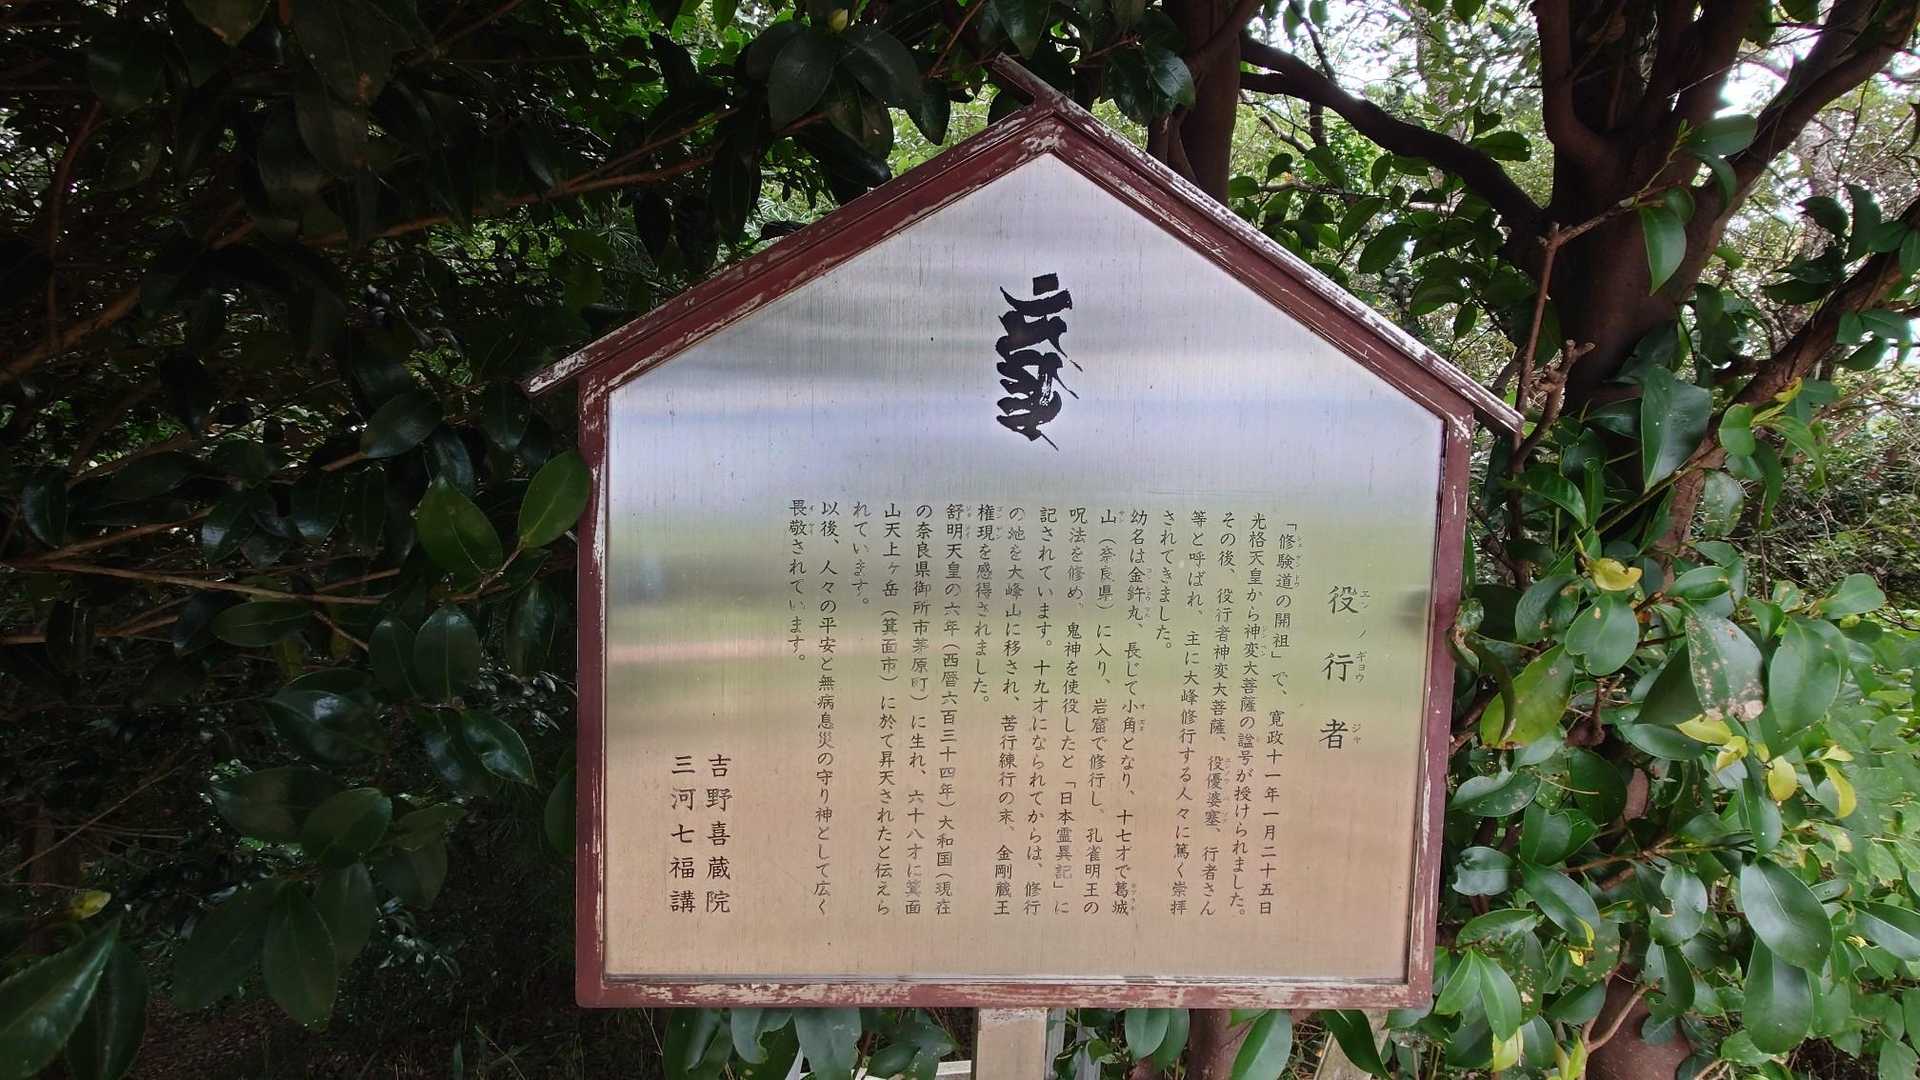 役行者
エンノギョウジャ
「修験道の開祖」で、寛政十一年一月二十五日
光格天皇から神変大菩薩の諡号が授けられました。
その後、役行者神変大菩薩、役優婆塞、行者さん
等と呼ばれ、主に大峰修行する人々に篤く崇拝
されてきました。
幼名は金杵丸、長じて小角となり、十七才で葛城
山（奈良県）に入り、岩窟で修行し、孔雀明王の
呪法を修め、鬼神を使役したと「日本霊異記」に
記されています。十九才になられてからは、修行
の池を大峰山に移され、苦行練行の末、金剛蔵王
権現を感得されました。
舒明天皇の六年（西暦六百三十四年）大和国（現在
の奈良県御所市茅原町）に生れ、六十八才に箕面
山天上ヶ岳（箕面市）に於て昇天されたと伝えら
れています。
以後、人々の平安と無病息災の守り神として広く
畏敬されています。
吉野喜蔵院
三河七福講